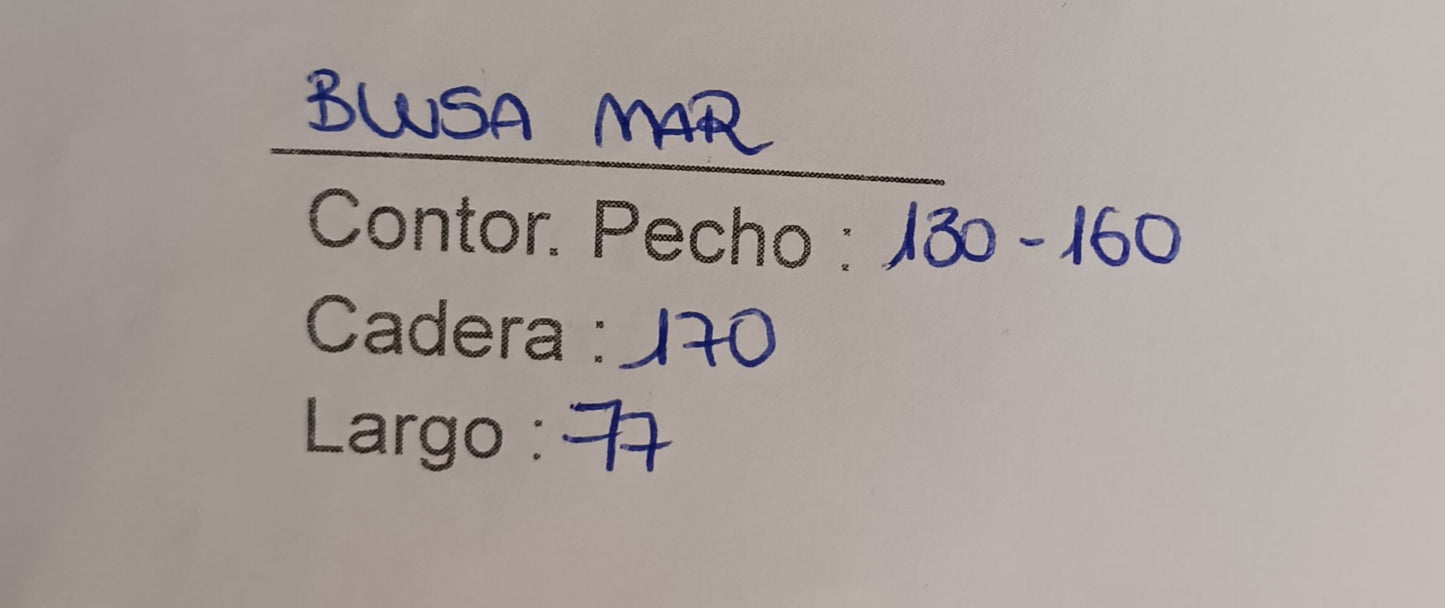 BLUSA MAR
Contor. Pecho : 130 - 160
Cadera : 170
Largo : 77